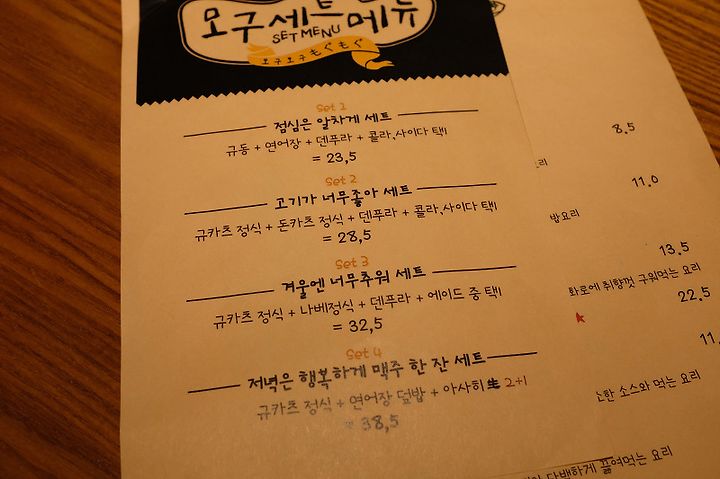 모구세트 메뉴
SET MENU
모구모구 もぐもぐ
Set 1
점심은 알차게 세트
규동 + 연어장 + 덴푸라 + 콜라,사이다 택1
= 23,5
Set 2
고기가 너무좋아 세트
규카츠 정식 + 돈카츠 정식 + 덴푸라 + 콜라,사이다 택1
= 28,5
Set 3
겨울엔 너무추워 세트
규카츠 정식 + 나베정식 + 덴푸라 + 에이드 중 택1
= 32,5
Set 4
저녁은 행복하게 맥주 한 잔 세트
규카츠 정식 + 연어장 덮밥 + 아사히 生 2+1
= 38,5
8.5
리
11.0
밥요리
13.5
화로에 취향껏 구워먹는 요리
22.5
11.
한 소스와 먹는 요리
담백하게 끓여먹는 요리